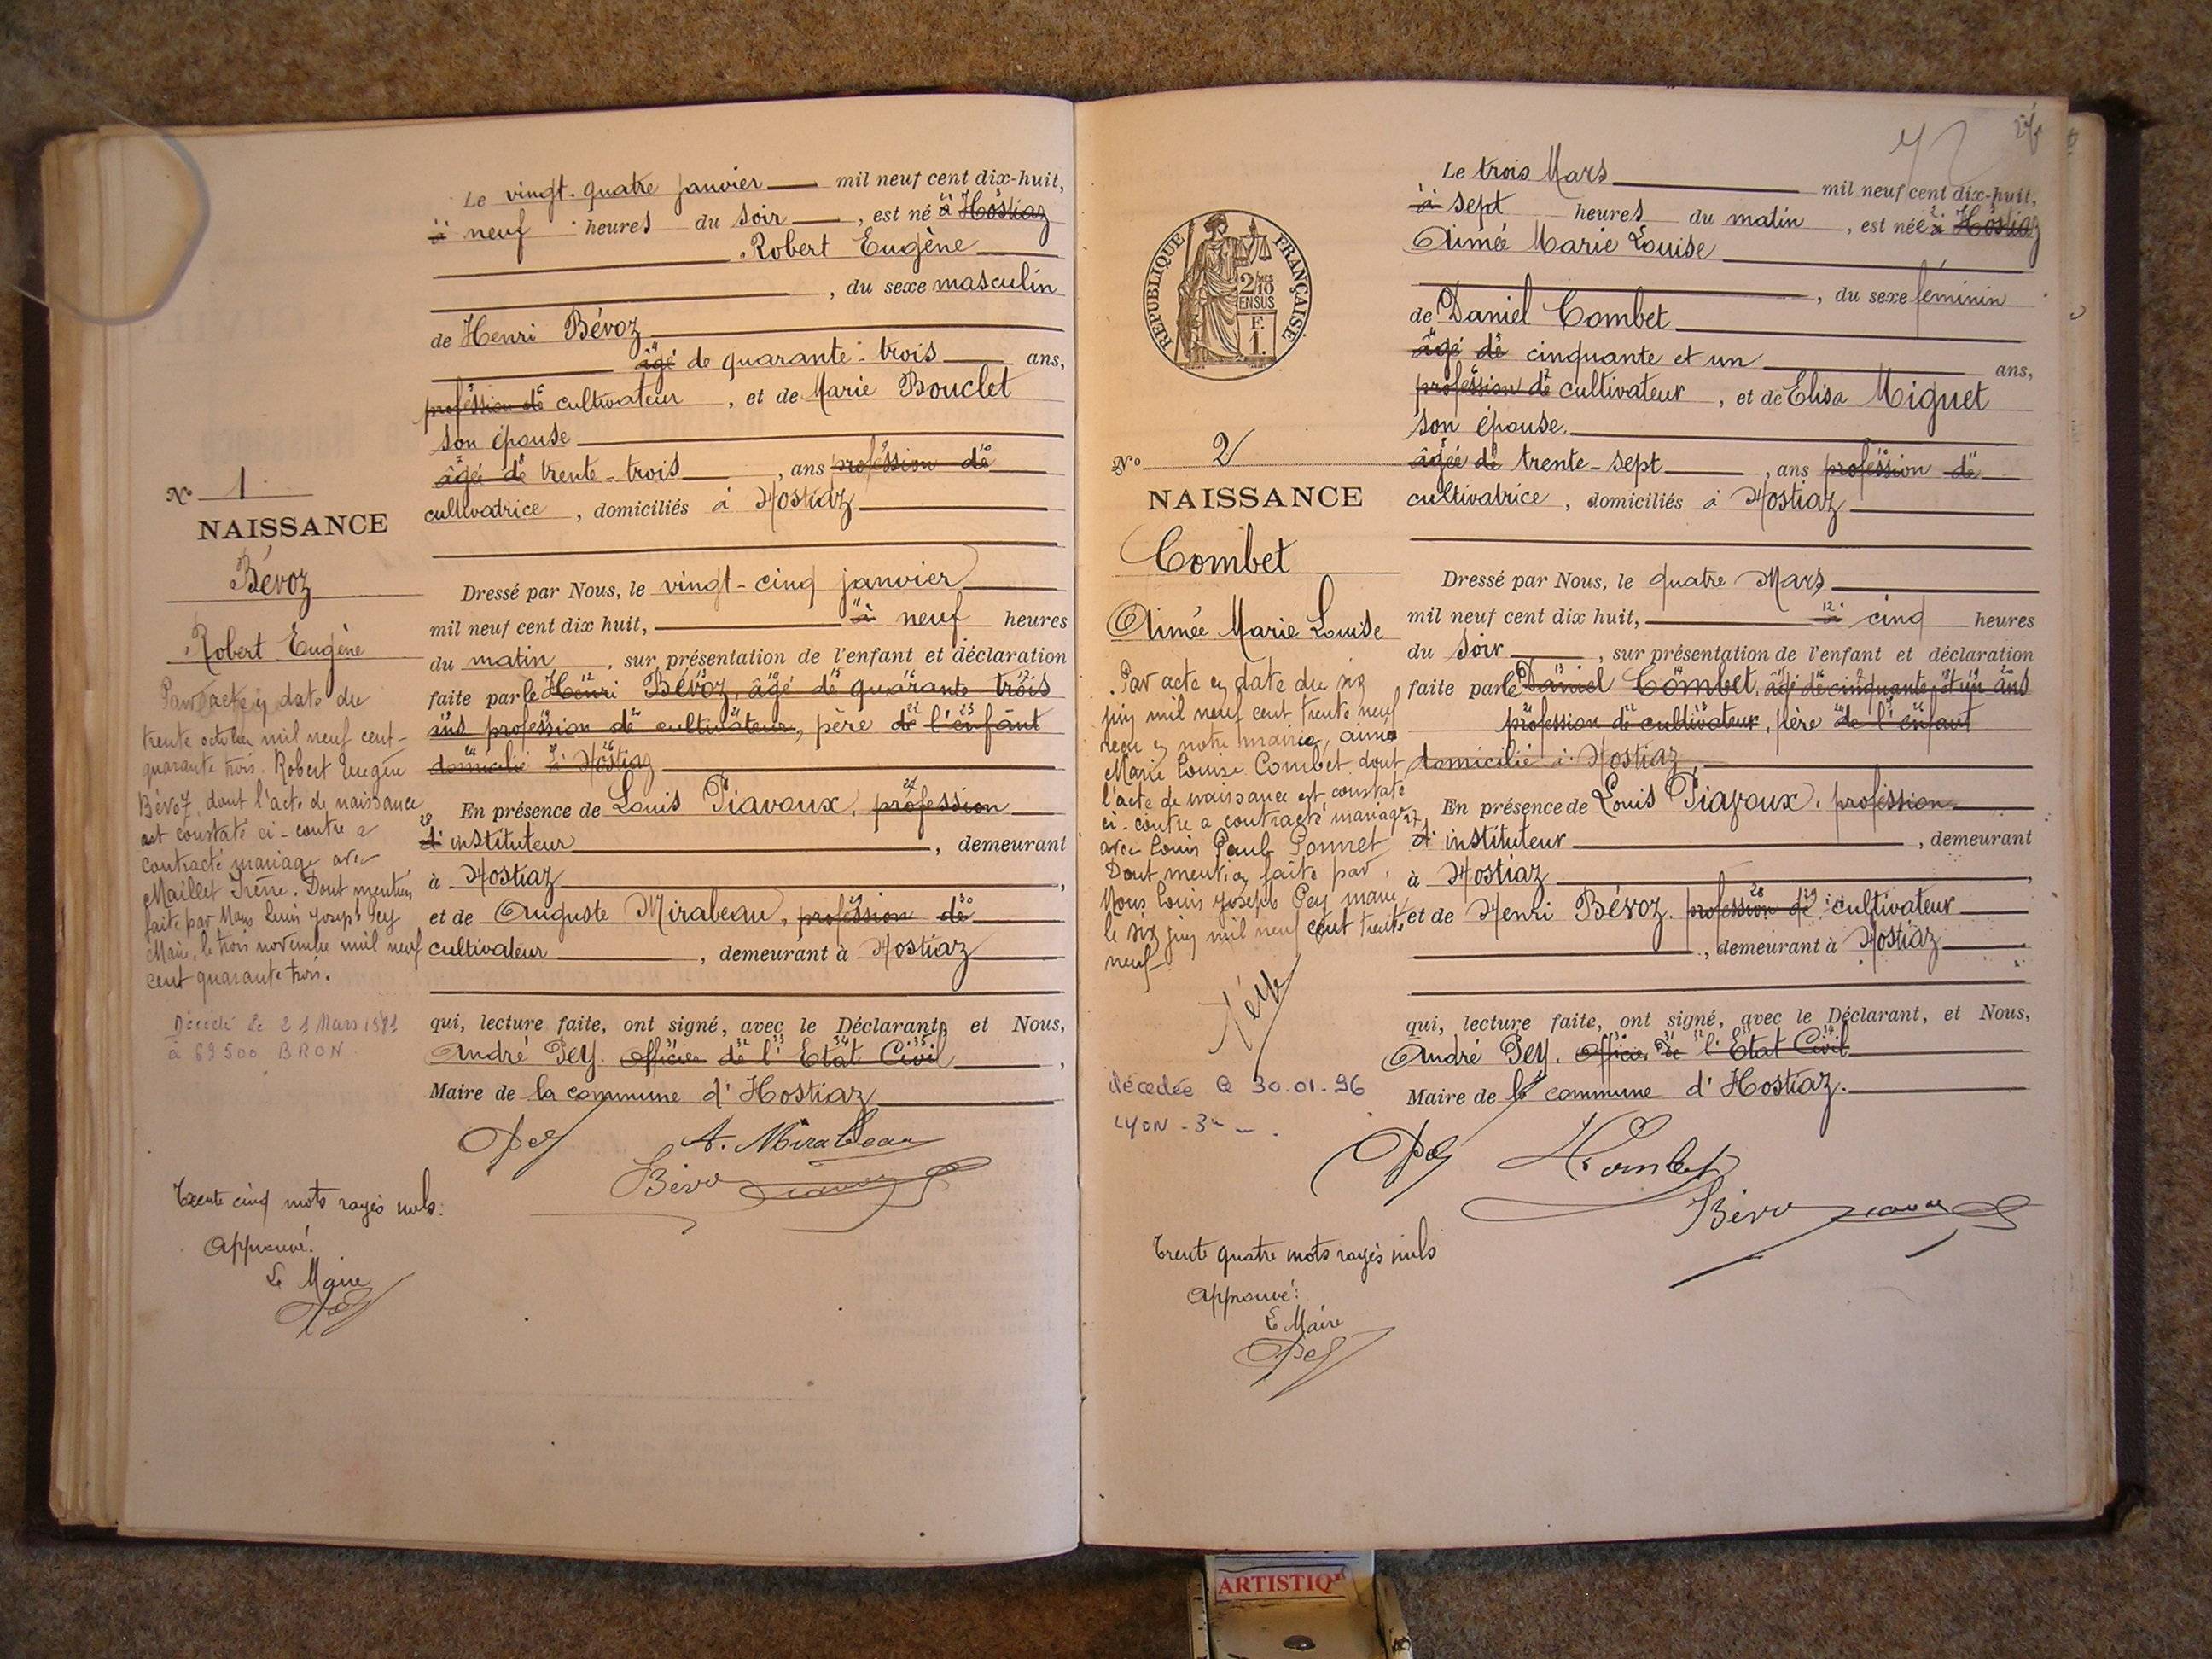 Le vingt-quatre janvier mil neuf cent dix-huit,
à neuf heures du soir, est né à Hostiaz
Robert Eugène
, du sexe masculin
de Henri Bévoz
âgé de quarante-trois ans,
profession de cultivateur, et de Marie Bouclet
son épouse
âgée de trente-trois, ans profession de
cultivatrice, domiciliés à Hostiaz
No 1
NAISSANCE
Bévoz
Robert Eugène
Dressé par Nous, le vingt-cinq janvier
mil neuf cent dix huit, à neuf heures
du matin, sur présentation de l'enfant et déclaration
faite par le Henri Bévoz, âgé de quarante trois
ans profession de cultivateur, père de l'enfant
domicilié à Hostiaz
En présence de Louis Piavoux, profession
d'instituteur, demeurant
à Hostiaz,
et de Auguste Mirabeau, profession de
cultivateur, demeurant à Hostiaz
qui, lecture faite, ont signé, avec le Déclarant, et Nous,
André Pey. Officier de l'Etat Civil,
Maire de la commune d'Hostiaz
Par acte en date du
trente octobre mil neuf cent-
quarante trois. Robert Eugène
Bévoz, dont l'acte de naissance
est constaté ci-contre a
contracté mariage avec
Maillet Irène. Dont mention
faite par Nous Louis Joseph Pey
Maire, le trois novembre mil neuf
cent quarante trois.
Décédé le 21 Mars 1981
à 69500 BRON
Pey A. Mirabeau
Bévoz Piavoux
Trente cinq mots rayés nuls.
Approuvé.
Le Maire
Pey
Le trois Mars mil neuf cent dix-huit,
à sept heures du matin, est née à Hostiaz
Aimée Marie Louise
, du sexe féminin
de Daniel Combet
âgé de cinquante et un ans,
profession de cultivateur, et de Elisa Miguet
son épouse.
âgée de trente-sept, ans profession de
cultivatrice, domiciliés à Hostiaz
REPUBLIQUE FRANÇAISE
2/10
EN SUS
F.
1.
No 2
NAISSANCE
Combet
Aimée Marie Louise
Dressé par Nous, le quatre Mars
mil neuf cent dix huit, à cinq heures
du soir, sur présentation de l'enfant et déclaration
faite par le Daniel Combet, âgé de cinquante et un ans
profession de cultivateur, père de l'enfant
domicilié à Hostiaz,
En présence de Louis Piavoux, profession
d'instituteur, demeurant
à Hostiaz,
et de Henri Bévoz. profession de cultivateur
, demeurant à Hostiaz
qui, lecture faite, ont signé, avec le Déclarant, et Nous,
André Pey. Officier de l'Etat Civil
Maire de la commune d'Hostiaz.
Par acte en date du six
juin mil neuf cent trente neuf
reçu en notre mairie, aimée
Marie Louise Combet dont
l'acte de naissance est constaté
ci-contre a contracté mariage
avec Louis Paul Ponnet
Dont mention faite par
Nous Louis Joseph Pey maire
le six juin mil neuf cent trente
neuf
Pey
décédée le 30.01.96
LYON - 3
Pey Combet
Bévoz Piavoux
Trente quatre mots rayés nuls
Approuvé:
Le Maire
Pey
ARTISTIQ